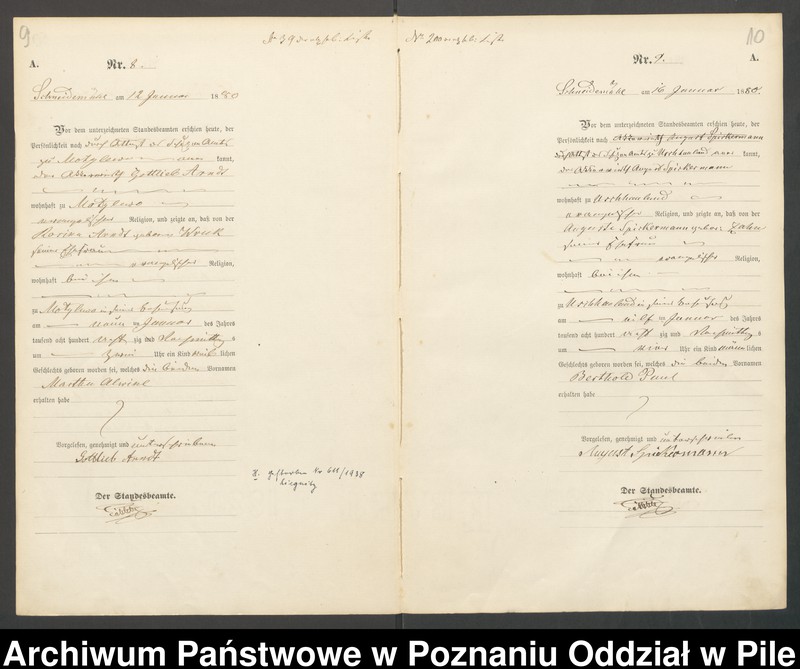 9
A.
Nr. 8.
Schneidemühl am 12 Januar 1880
Vor dem unterzeichneten Standesbeamten erschien heute, der
Persönlichkeit nach durch Attest des
zu Motylewo kannt,
der Gottlieb Arndt
wohnhaft zu Motylewo
evangelischer Religion, und zeigte an, daß von der
Arndt geborene
seiner Ehefrau
evangelischer Religion,
wohnhaft bei ihm
zu Motylewo in seiner Behausung
am neun Januar des Jahres
tausend acht hundert acht zig und Nachmittags
um zehn Uhr ein Kind weiblichen
Geschlechts geboren worden sei, welches die beiden Vornamen
Martha Alwine
erhalten habe
Vorgelesen, genehmigt und unterschrieben
Gottlieb Arndt
Der Standesbeamte.
gestorben Nr 611/1938
Liegnitz
10
Nr. 9.
A.
Schneidemühl am 16 Januar 1880.
Vor dem unterzeichneten Standesbeamten erschien heute, der
Persönlichkeit nach August Spickermann
durch Attest des kannt,
der August Spickermann
wohnhaft zu Uschhauland
evangelischer Religion, und zeigte an, daß von der
Auguste Spickermann geborene
seiner Ehefrau
evangelischer Religion,
wohnhaft bei ihm
zu Uschhauland in seiner Behausung
am elf Januar des Jahres
tausend acht hundert acht zig und Nachmittags
um Uhr ein Kind männlichen
Geschlechts geboren worden sei, welches die beiden Vornamen
Berthold Paul
erhalten habe
Vorgelesen, genehmigt und unterschrieben
August Spickermann
Der Standesbeamte.
Archiwum Państwowe w Poznaniu Oddział w Pile